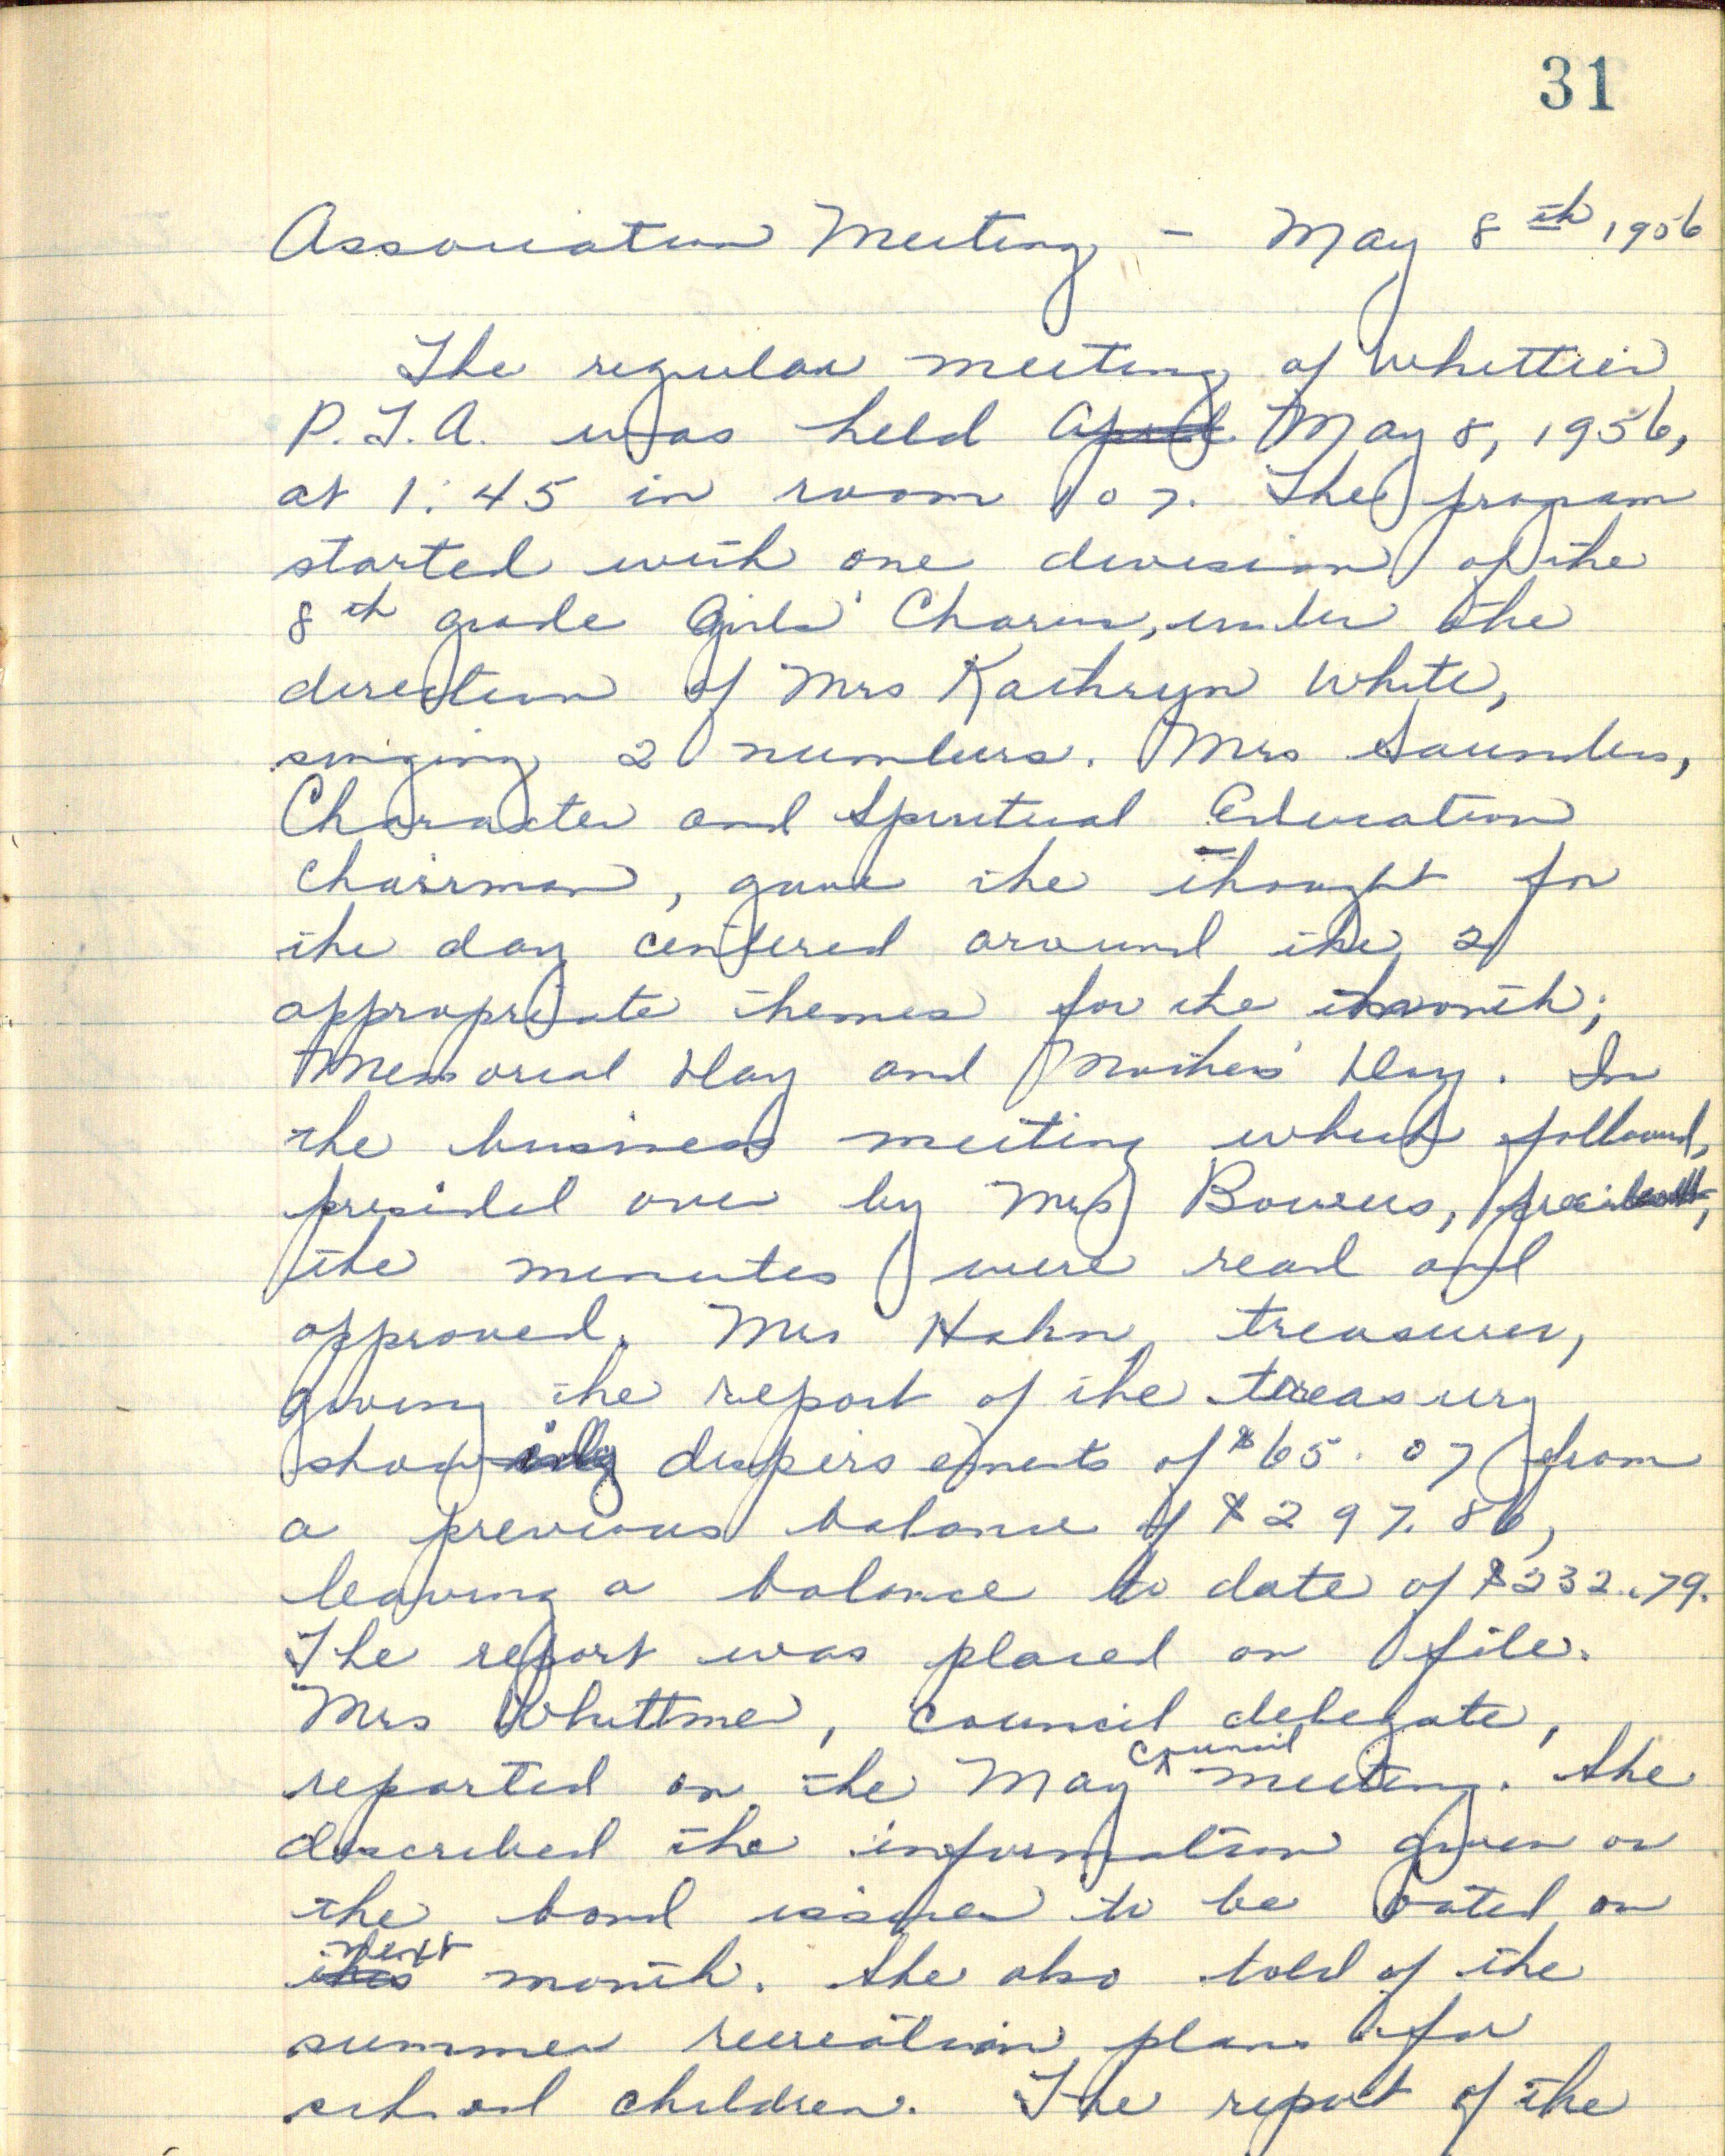 31
Association Meeting - May 8th 1956
The regular meeting of Whittier
P.T.A. was held April May 8, 1956,
at 1:45 in room 107. The program
started with one division of the
8th grade Girls' Chorus, under the
direction of Mrs Kathryn White,
singing 2 numbers. Mrs Saunders,
Character and Spiritual Education
Chairman, gave the thought for
the day centered around the 2
appropriate themes for the month;
Memorial Day and Mothers' Day. In
the business meeting which followed,
presided over by Mrs Bowers, president,
the minutes were read and
approved. Mrs Hahn, treasurer,
giving the report of the treasury
showing dispersements of $65.07 from
a previous balance of $297.86,
leaving a balance to date of $232.79.
The report was placed on file.
Mrs Whittme, council delegate,
reported on the May council meeting. She
described the information given on
the bond issues to be voted on
this next month. She also told of the
summer recreation plans for
school children. The report of the